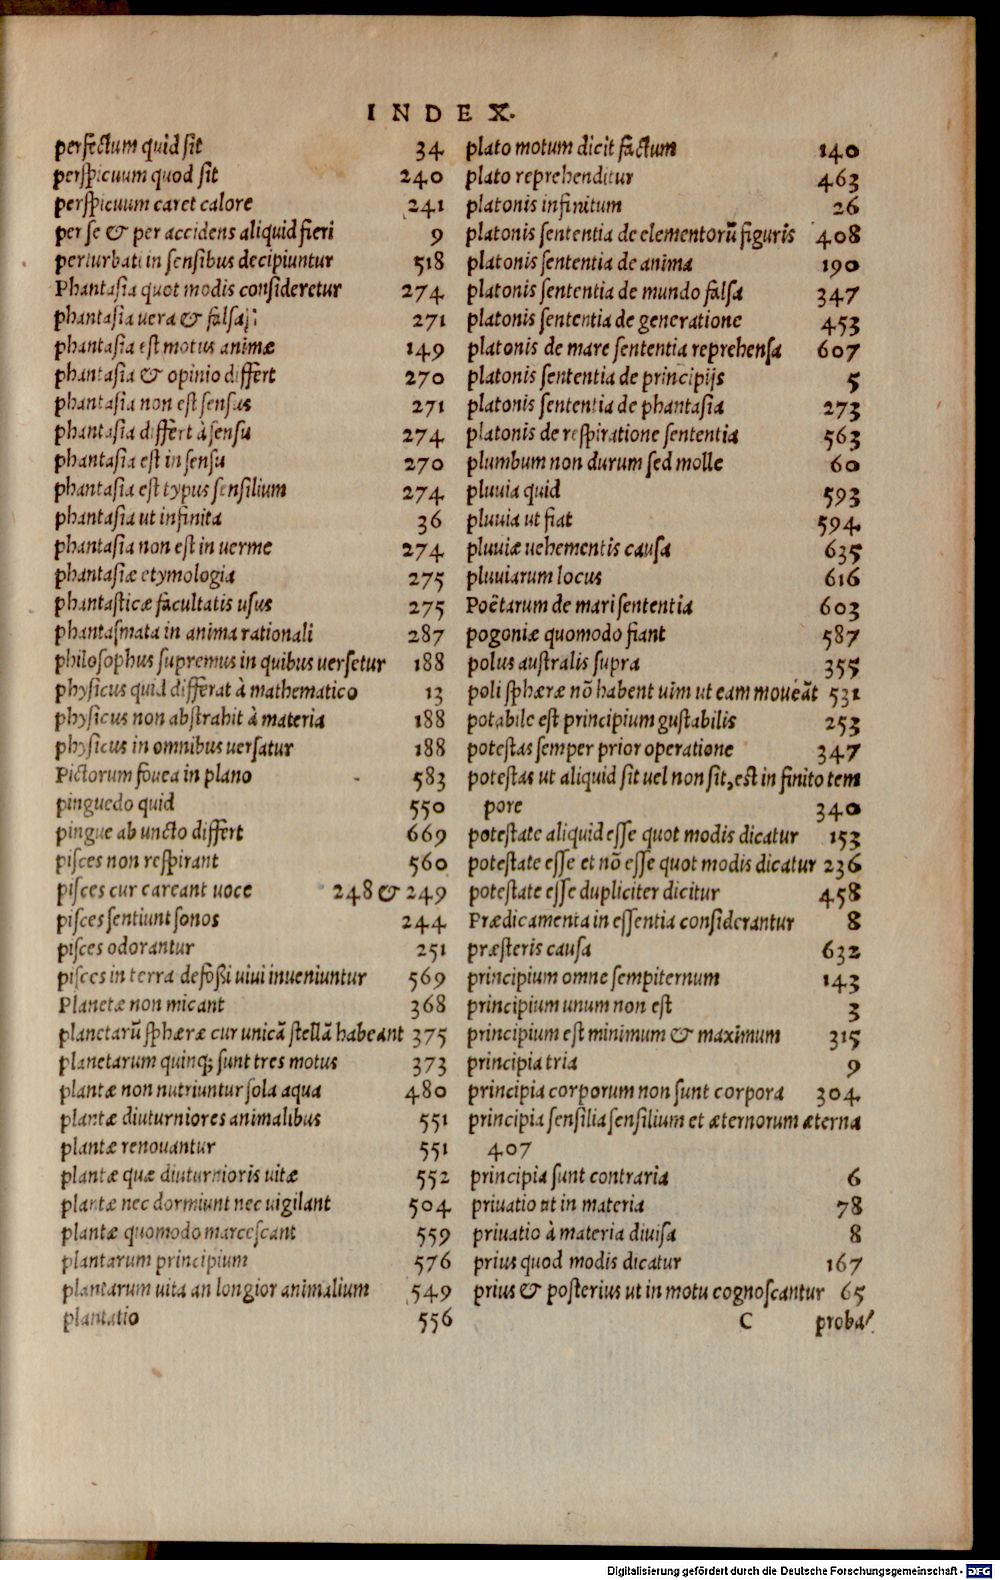 INDEX.
perfectum quid sit 34
perspicuum quod sit 240
perspicuum caret calore 241
per se & per accidens aliquid fieri 9
perturbati in sensibus decipiuntur 518
Phantasia quot modis consideretur 274
phantasia uera & falsa 271
phantasia est motus animæ 149
phantasia & opinio differt 270
phantasia non est sensus 271
phantasia differt à sensu 274
phantasia est in sensu 270
phantasia est typus sensilium 274
phantasia ut infinita 36
phantasia non est in uerme 274
phantasiæ etymologia 275
phantasticæ facultatis usus 275
phantasmata in anima rationali 287
philosophus supremus in quibus uersetur 188
physicus quid differat à mathematico 13
physicus non abstrahit à materia 188
physicus in omnibus uersatur 188
Pictorum fouea in plano 583
pinguedo quid 550
pingue ab uncto differt 669
pisces non respirant 560
pisces cur careant uoce 248 & 249
pisces sentiunt sonos 244
pisces odorantur 251
pisces in terra defoßi uiui inueniuntur 569
Planetæ non micant 368
planetarũ sphæræ cur unicã stellã habeant 375
planetarum quinq; sunt tres motus 373
plantæ non nutriuntur sola aqua 480
plantæ diuturniores animalibus 551
plantæ renouantur 551
plantæ quæ diuturnioris uitæ 552
plantæ nec dormiunt nec uigilant 504
plantæ quomodo marcescant 559
plantarum principium 576
plantarum uita an longior animalium 549
plantatio 556
plato motum dicit factum 140
plato reprehenditur 463
platonis infinitum 26
platonis sententia de elementorũ figuris 408
platonis sententia de anima 190
platonis sententia de mundo falsa 347
platonis sententia de generatione 453
platonis de mare sententia reprehensa 607
platonis sententia de principijs 5
platonis sententia de phantasia 273
platonis de respiratione sententia 563
plumbum non durum sed molle 60
pluuia quid 593
pluuia ut fiat 594
pluuiæ uehementis causa 635
pluuiarum locus 616
Poëtarum de mari sententia 603
pogoniæ quomodo fiant 587
polus australis supra 355
poli sphæræ nõ habent uim ut eam moueãt 531
potabile est principium gustabilis 253
potestas semper prior operatione 347
potestas ut aliquid sit uel non sit, est in finito tem
pore 340
potestate aliquid esse quot modis dicatur 153
potestate esse et nõ esse quot modis dicatur 236
potestate esse dupliciter dicitur 458
Prædicamenta in essentia considerantur 8
præsteris causa 632
principium omne sempiternum 143
principium unum non est 3
principium est minimum & maximum 315
principia tria 9
principia corporum non sunt corpora 304
principia sensilia sensilium et æternorum æterna
407
principia sunt contraria 6
priuatio ut in materia 78
priuatio à materia diuisa 8
prius quod modis dicatur 167
prius & posterius ut in motu cognoscantur 65
C proba/
Digitalisierung gefördert durch die Deutsche Forschungsgemeinschaft - DFG